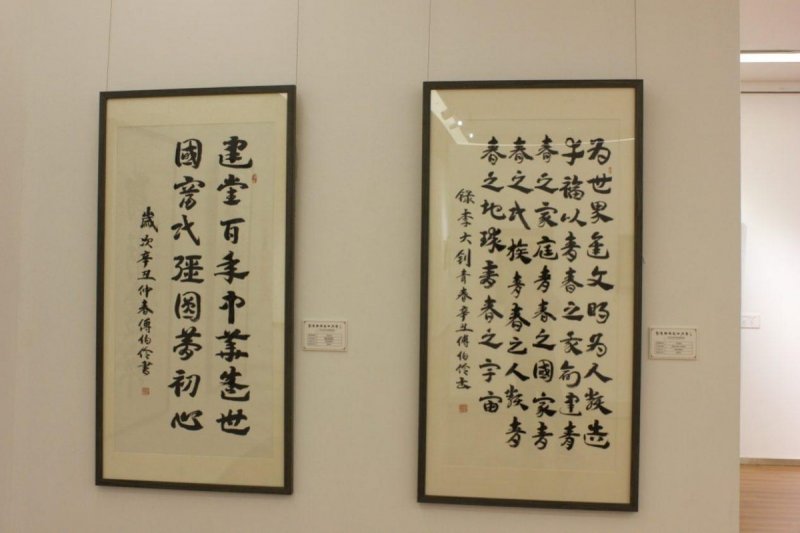 建党百年中華盛世
國富民彊圓夢初心
歲次辛丑仲春傅伯伶書
为世界進文明为人類造
幸福以青春之我創建青
春之家庭青春之國家青
春之民族青春之人類青
春之地球青春之宇宙
録李大釗青春辛丑傅伯伶書